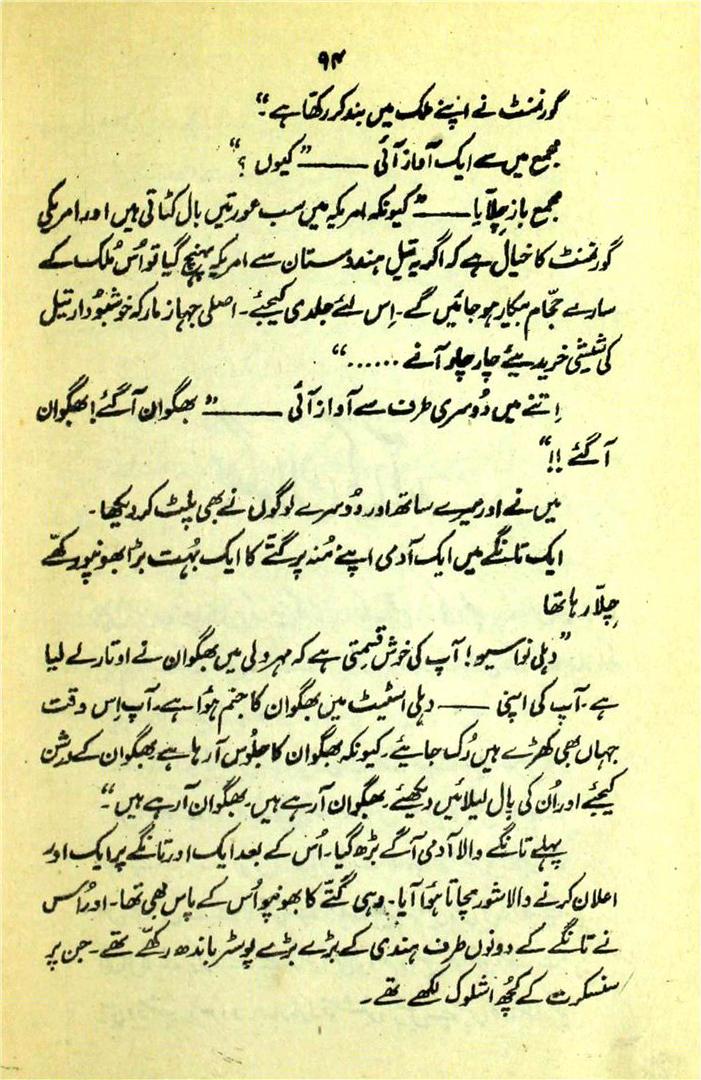 ۹۴
گورنمنٹ نے اپنے ملک میں بند کر رکھا ہے۔"
مجمع میں سے ایک آواز آئی ——— "کیوں ؟"
مجمع باز چلّایا ——— "کیونکہ امریکہ میں سب عورتیں بال کٹاتی ہیں اور امریکی
گورنمنٹ کا خیال ہے کہ اگر یہ تیل ہندوستان سے امریکہ پہنچ گیا تو اُس مُلک کے
سارے حجّام بیکار ہو جائیں گے۔ اِس لئے جلدی کیجئے۔ اصلی جہاز مارکہ خوشبُو دار تیل
کی شیشی خریدیئے چار چار آنے ......"
اِتنے میں دُوسری طرف سے آواز آئی ——— "بھگوان آ گئے! بھگوان
آ گئے !!"
میں نے اور میرے ساتھ اور دُوسرے لوگوں نے بھی پلٹ کر دیکھا۔
ایک تانگے میں ایک آدمی اپنے مُنہ پر گتّے کا ایک بُہت بڑا بھونپو رکھّے
چِلّا رہا تھا
"دہلی نواسیو! آپ کی خوش قسمتی ہے کہ مہرولی میں بھگوان نے اوتار لے لیا
ہے۔ آپ کی اپنی ——— دہلی اسٹیٹ میں بھگوان کا جنم ہُوا ہے۔ آپ اِس وقت
جہاں بھی کھڑے ہیں رُک جایئے۔ کیونکہ بھگوان کا جلُوس آ رہا ہے۔ بھگوان کے درشن
کیجئے اور اُن کی بال لیلائیں دیکھئے۔ بھگوان آ رہے ہیں۔ بھگوان آ رہے ہیں۔"
پہلے تانگے والا آدمی آگے بڑھ گیا۔ اُس کے بعد ایک اور تانگے پر ایک اور
اعلان کرنے والا شور مچاتا ہُوا آیا۔ وہی گتّے کا بھونپو اُس کے پاس بھی تھا۔ اور اُس
نے تانگے کے دونوں طرف ہندی کے بڑے بڑے پوسٹر باندھ رکھّے تھے۔ جن پر
سنسکرت کے کچُھ اشلوک لکھے تھے۔